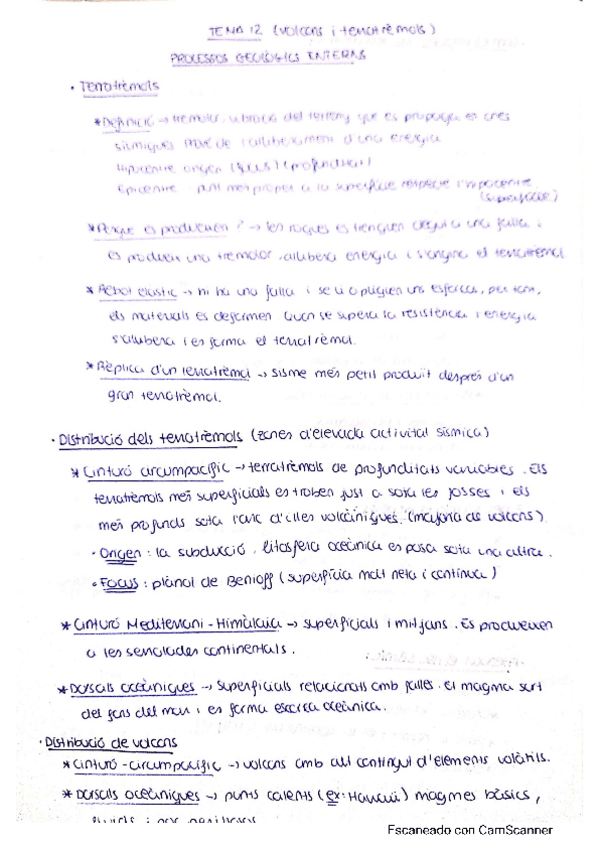 TEMA 12 (volcans i terratrèmols)
PROCESSOS GEOLÒGICS INTERNS
· Terratrèmols
* Definició → tremolor, vibració del terreny que es propaga en ones
sísmiques. Prové de l'alliberament d'una energia
Hipocentre: origen (focus) (profunditat)
Epicentre: punt més proper a la superfície respecte l'hipocentre
(superfície)
* Perquè es produeixen? → les roques es trenquen degut a una falla i
es produeix una tremolor, allibera energia i s'origina el terratrèmol
* Rebot elàstic → hi ha una falla i se li apliquen uns esforços, per tant,
els materials es deformen. Quan se supera la resistència l'energia
s'allibera i es forma el terratrèmol.
* Rèplica d'un terratrèmol → sisme més petit produït després d'un
gran terratrèmol.
· Distribució dels terratrèmols (zones d'elevada activitat sísmica)
* Cinturó circumpacífic → terratrèmols de profunditats variables. Els
terratrèmols més superficials es troben just a sota les fosses i els
més profunds sota l'arc d'illes volcàniques. (majoria de volcans)
· Origen: la subducció, litosfera oceànica es posa sota una altra.
· Focus: plànol de Benioff (superfície molt neta i contínua)
* Cinturó Mediterrani-Himàlaia → superficials i mitjans. Es produeixen
a les serralades continentals.
* Dorsals oceàniques → superficials relacionats amb falles. El magma surt
del fons del mar i es forma escorça oceànica.
· Distribució de volcans
* Cinturó-circumpacífic → volcans amb alt contingut d'elements volàtils.
* Dorsals oceàniques → punts calents (ex: Hawaii) magmes bàsics,
fluids i poc perillosos
Escaneado con CamScanner